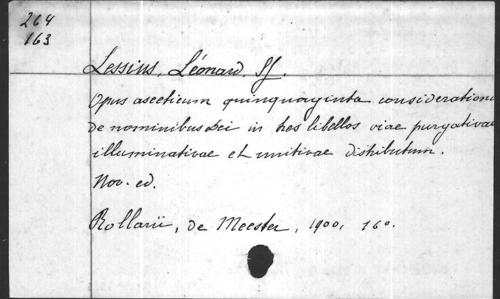 264
163
Lessius, Léonard. Sf.
Opus asceticum quinquaginta consideration
de nominibus Dei in tres libellos viae purgativae
illuminativae et unitivae distributum.
Nov. ed.
Rollarii, de Meester, 1900, 16o.